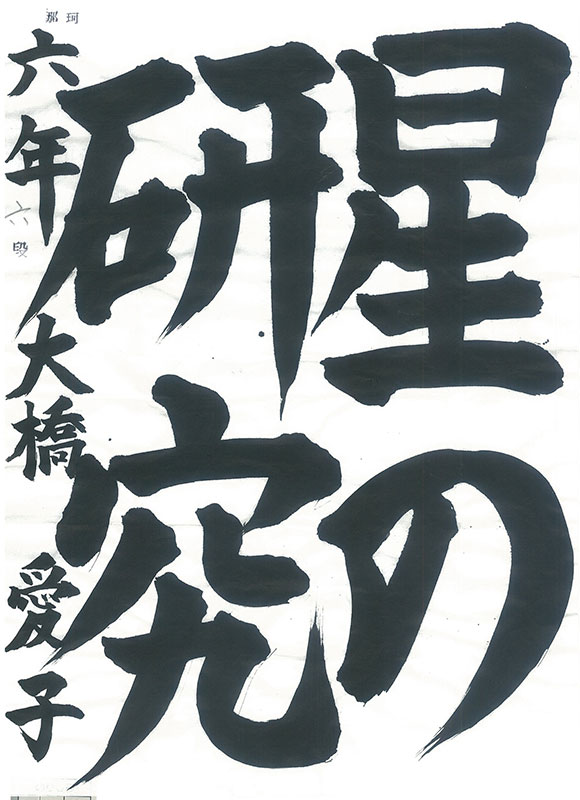 星の
研究
六年 大橋 愛子
六段
那珂